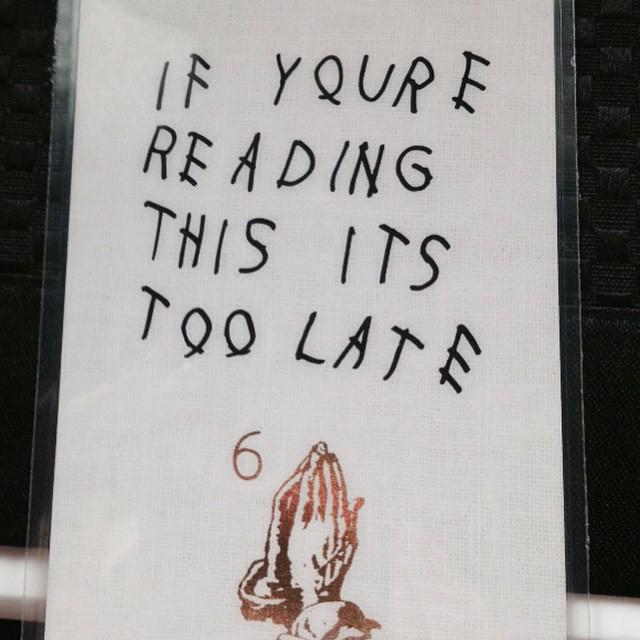 IF YOURE
READING
THIS ITS
TOO LATE
6